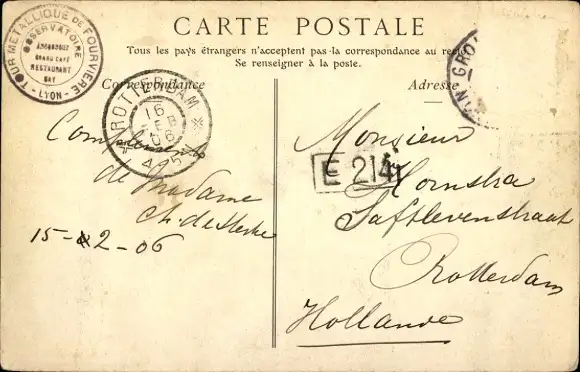 CARTE POSTALE
Tous les pays étrangers n'acceptent pas la correspondance au recto
Se renseigner à la poste.
Correspondance
Adresse
TOUR METALLIQUE DE FOURVIÈRE
LYON
OBSERVATOIRE
ASCENSEUR
GRAND CAFÉ
RESTAURANT
BAY
ROTTERDAM
16
FE
06
4-5
GRO
E 214
Compliments
de Madame
Ch. de
15-2-06
Monsieur
Hornstra
Saftlevenstraat
Rotterdam
Hollande